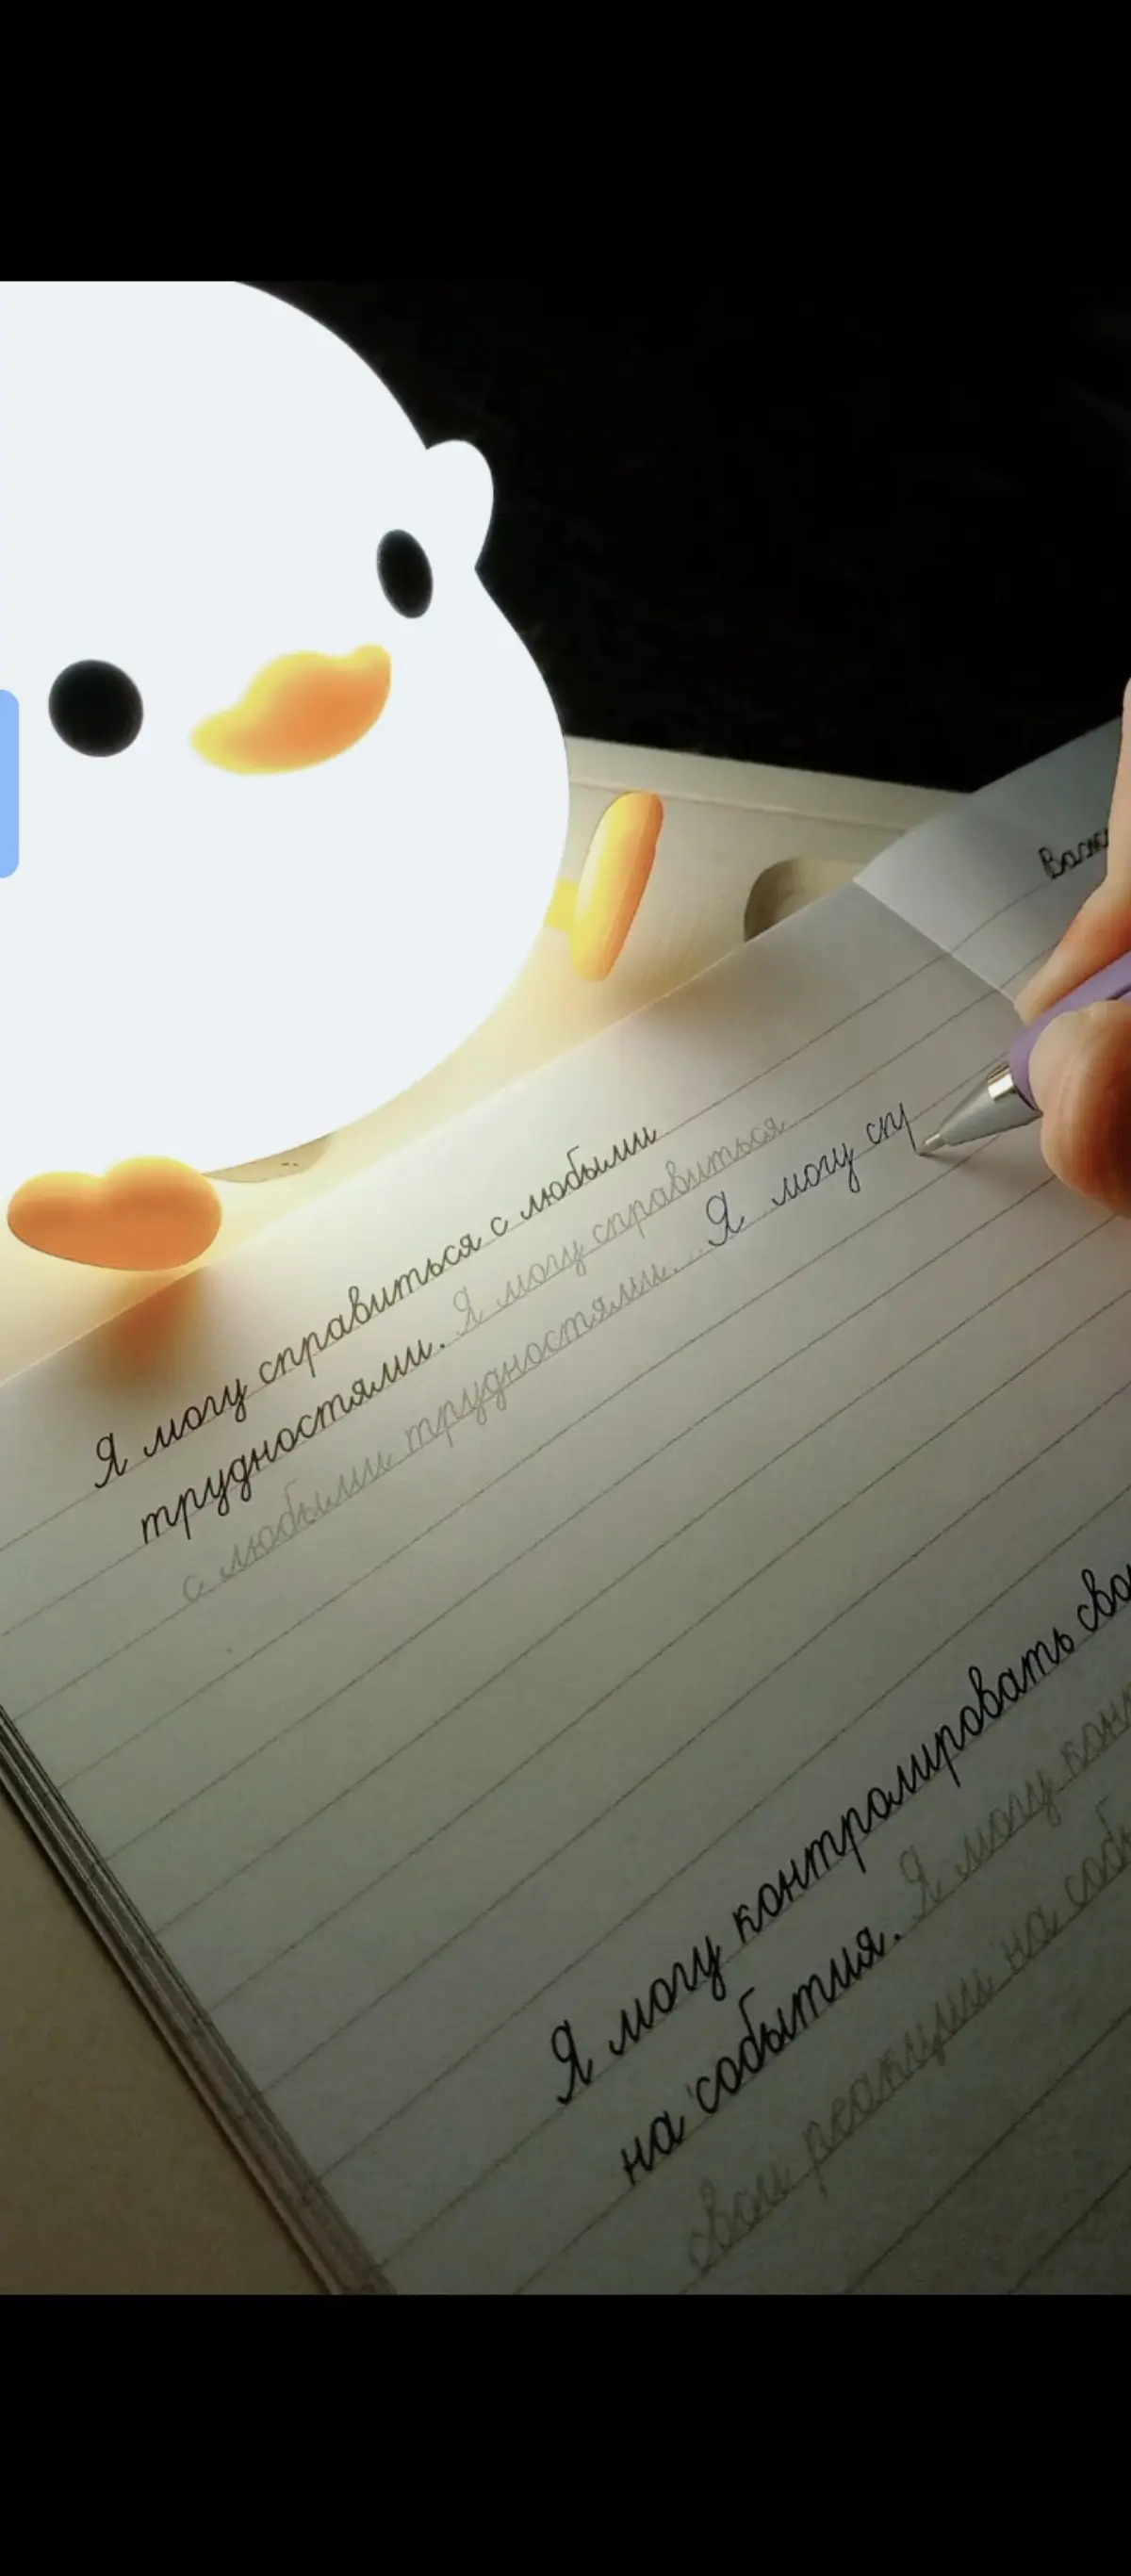 Я могу справиться с любыми
трудностями. Я могу справиться
с любыми трудностями. Я могу сп
Я могу контролировать сво
на события. Я могу кон
свои реакции на соб